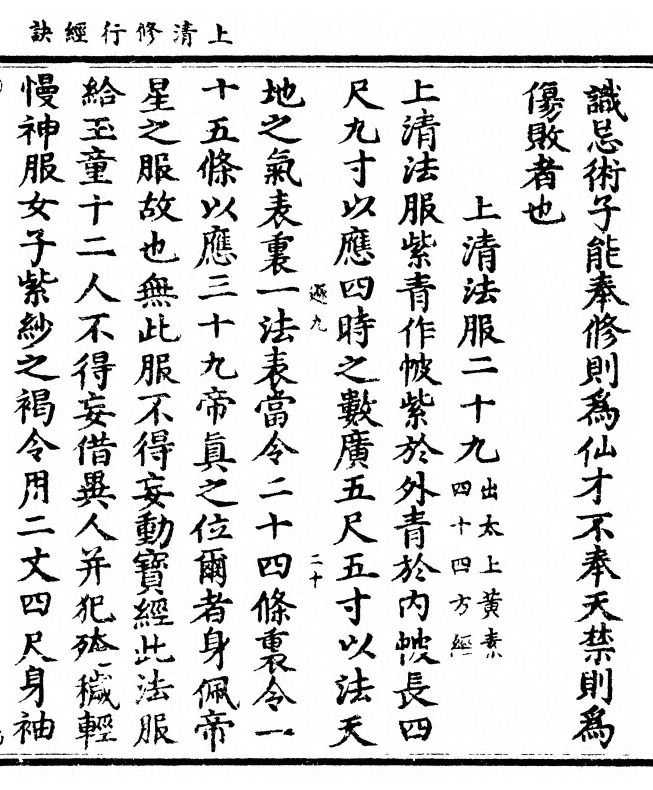 上清修行經訣
識忌術子能奉修則爲仙才不奉天禁則爲
傷敗者也
上清法服二十九出太上黃素四十四方經
上清法服紫青作帔紫於外青於內帔長四
尺九寸以應四時之數廣五尺五寸以法天
遜九
二十
地之氣表裏一法表當令二十四條裏令一
十五條以應三十九帝真之位爾者身佩帝
星之服故也無此服不得妄動寶經此法服
給玉童十二人不得妄借異人并犯殗穢輕
慢神服女子紫紗之褐令用二丈四尺身袖